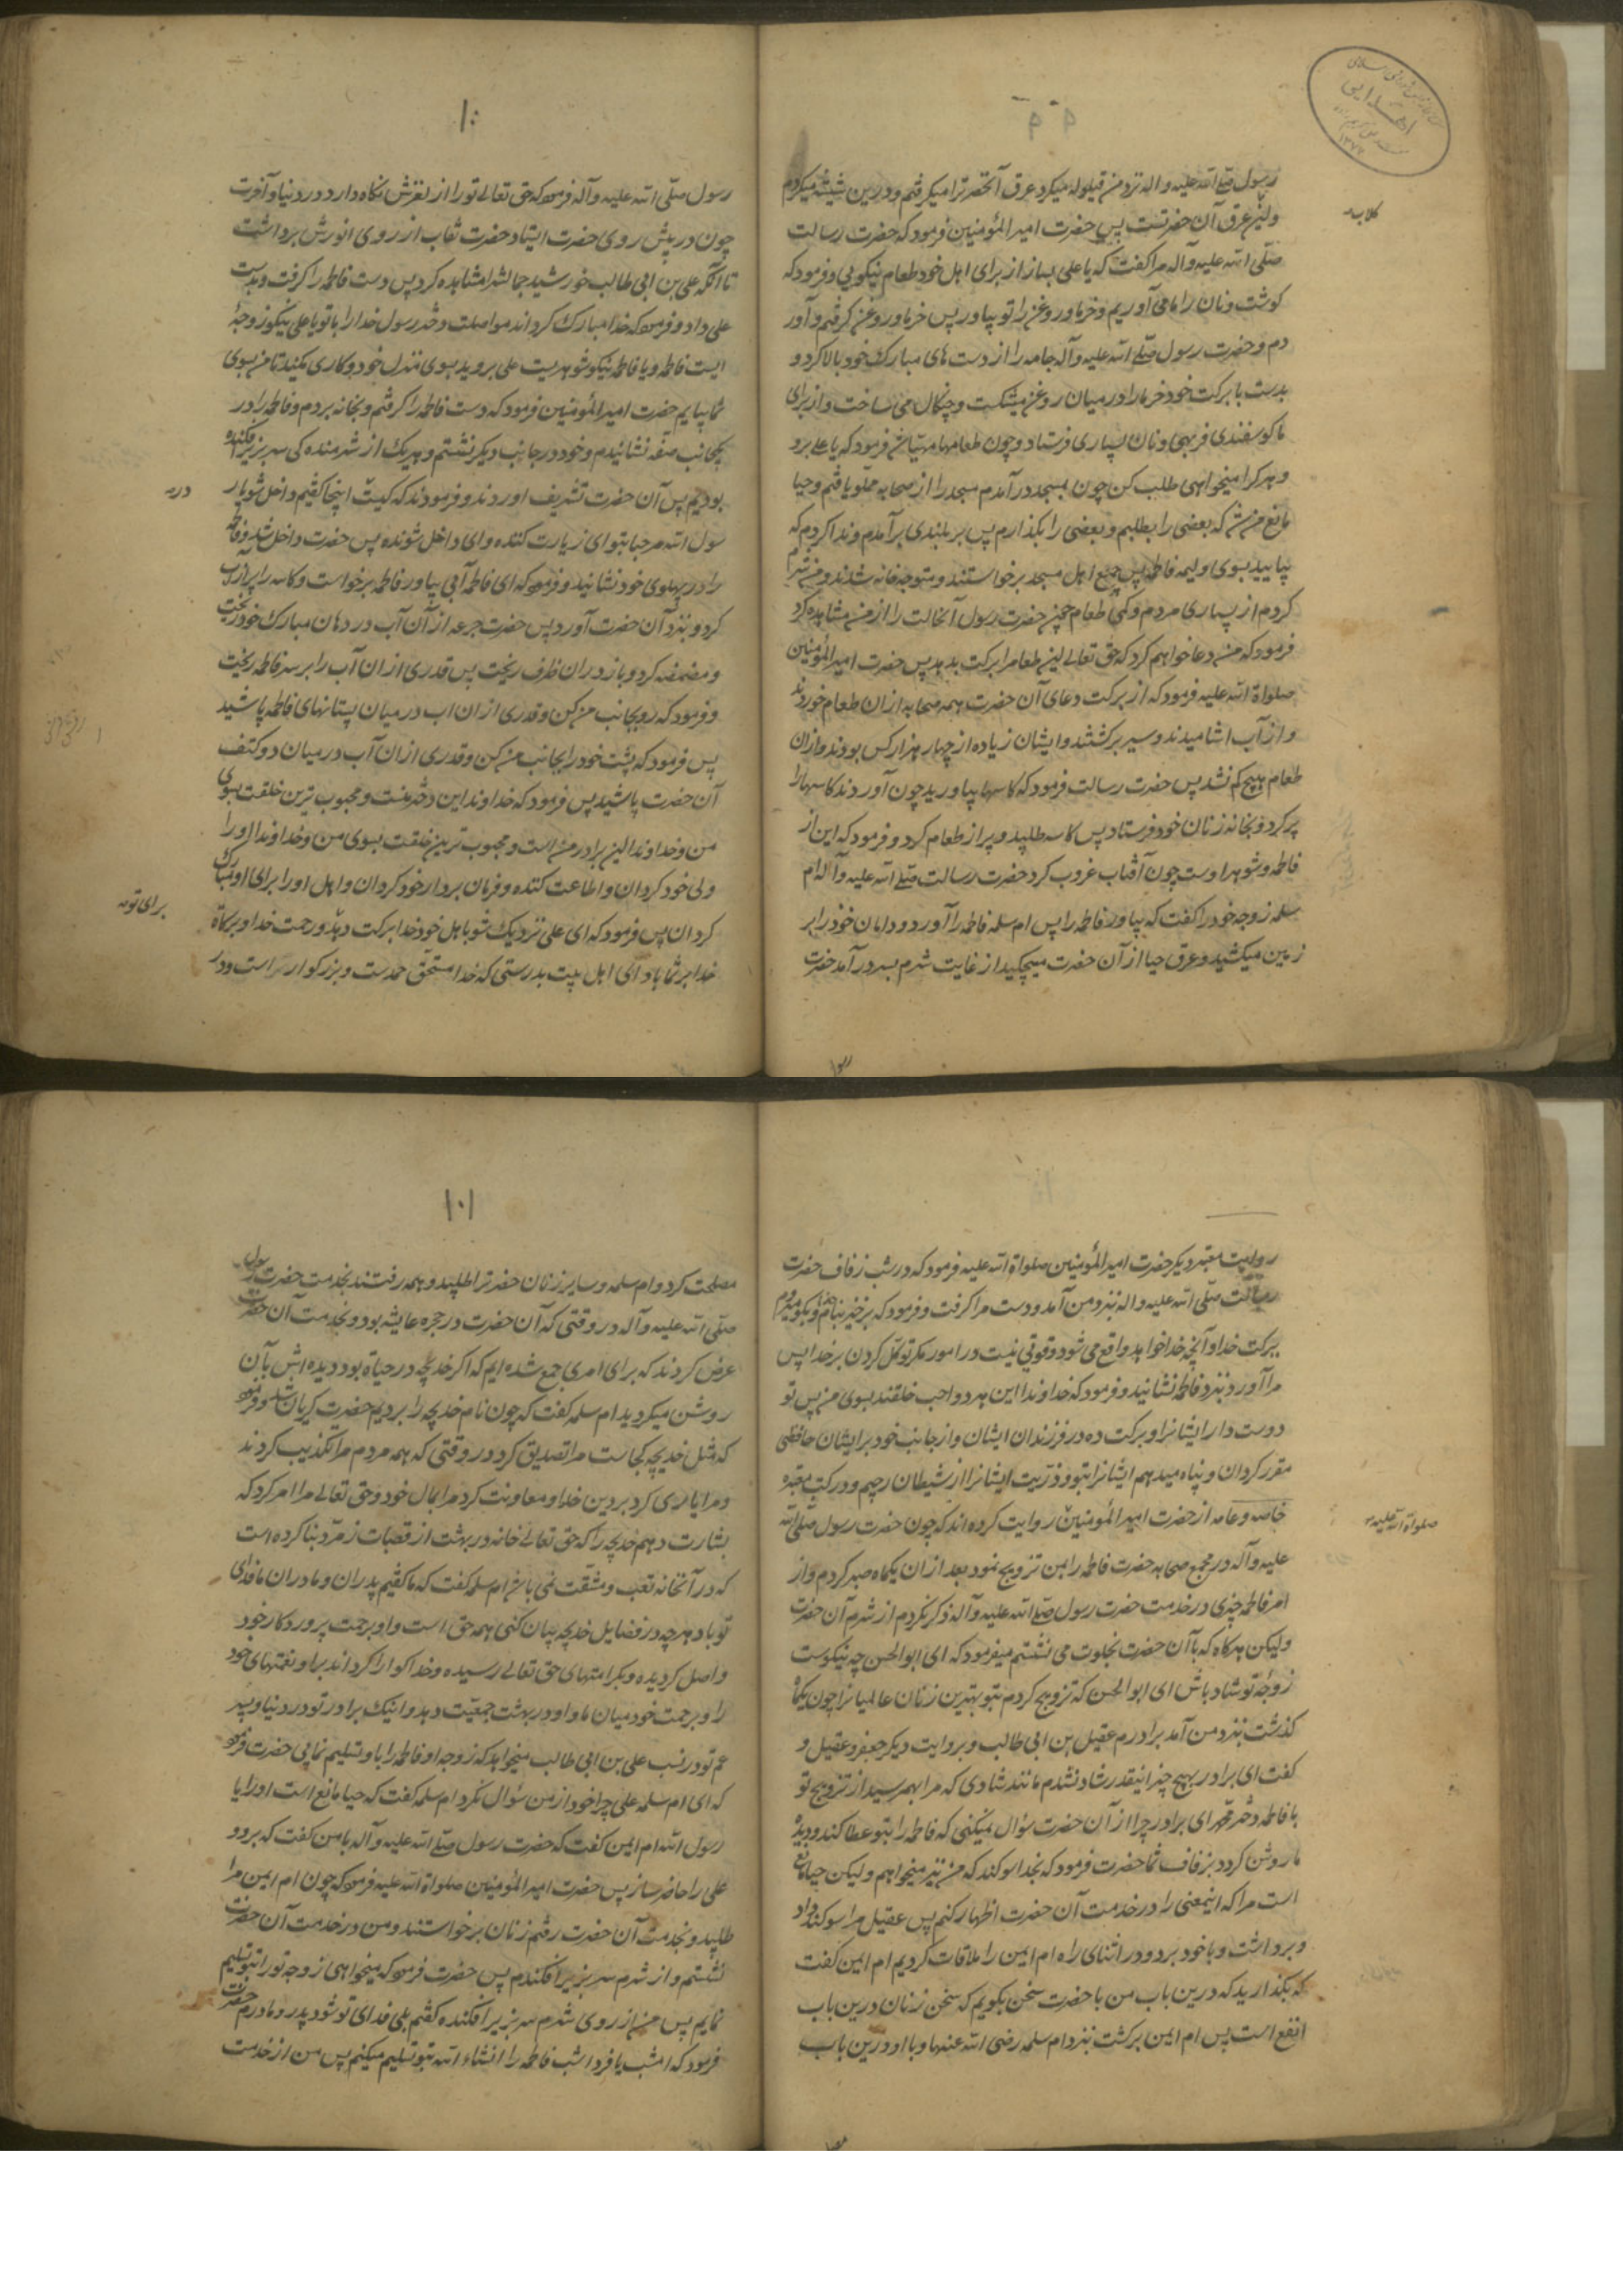 رسول صلی الله علیه واله نزد من قیلوله میکرد عرق آنحضرترا میکرفتم و درین شیشه میکردم
کلاب
واین عرق آن حضرتست پس حضرت امیر المؤمنین فرمود که حضرت رسالت
صلّی الله علیه وآله مرا کفت که یا علی بساز از برای اهل خود طعام نیکویی و فرمود که
کوشت ونان را ما می آوریم وخرما وروغن را تو بیاور پس خرما وروغن کرفتم وآور
دم و حضرت رسول صلّی الله علیه وآله جامه را از دست های مبارک خود بالا کرد و
بدست با برکت خود خرما را در میان روغن میشکست و چنکال می ساخت واز برای
ما کوسفندی فربهی ونان بسیاری فرستاد وچون طعامها مهیا شد فرمود که یا علی برو
وهر کرا میخواهی طلب کن چون بمسجد درآمدم مسجد را از صحابه مملو یافتم وحیا
مانع من شد که بعضی را بطلبم وبعضی را بکذارم پس بر بلندی برآمدم وندا کردم که
بیایید بسوی ولیمه فاطمه پس جمیع اهل مسجد برخواستند و متوجه خانه شدند ومن شرم
کردم از بسیاری مردم وکمی طعام چون حضرت رسول آنحالت را از من مشاهده کرد
فرمود که من دعا خواهم کرد که حق تعالی این طعام را برکت بدهد پس حضرت امیر المؤمنین
صلواة الله علیه فرمود که از برکت دعای آن حضرت همه صحابه ازان طعام خوردند
واز آب اشامیدند وسیر برکشتند وایشان زیاده از چهار هزار کس بودند وازان
طعام هیچ کم نشد پس حضرت رسالت فرمود که کاسها بیاورید چون آوردند کاسهارا
پر کرد وبخانه زنان خود فرستاد پس کاسه طلبید و پر از طعام کرد و فرمود که این از
فاطمه وشوهر اوست چون آفتاب غروب کرد حضرت رسالت صلّی الله علیه وآله ام
سلمه زوجه خود را کفت که بیاور فاطمه را پس ام سلمه فاطمه را آورد ودامان خود را بر
زمین میکشید وعرق حیا از آن حضرت میچکید از غایت شرم بسر درآمد حضرت
رسو
۱۰۰
رسول صلّی الله علیه وآله فرمود که حق تعالی تو را از لغزش نکاه دارد در دنیا وآخرت
چون در پیش روی حضرت ایستاد حضرت نقاب از روی انورش برداشت
تا آنکه علی بن ابی طالب خورشید جمالشرا مشاهده کرد پس دست فاطمه را کرفت وبدست
علی داد و فرمود که خدا مبارک کرداند مواصلت دختر رسول خدا را با تو یا علی نیکو زوجهٔ
ایست فاطمه ویا فاطمه نیکو شوهریست علی بروید بسوی منزل خود وکاری مکنید تا من بسوی
شما بیایم حضرت امیر المؤمنین فرمود که دست فاطمه را کرفتم وبخانه بردم وفاطمه را در
یکجانب صفه نشانیدم وخود در جانب دیکر نشستم وهر یک از شرمنده کی سر بزیر افکنده
بودیم پس آن حضرت تشریف اوردند وفرمودند که کیست اینجا کفتم داخل شو یا ر
در
سول الله مرحبا بتو ای زیارت کننده وای داخل شونده پس حضرت داخل شد وفاطمه
را در پهلوی خود نشانید وفرمود که ای فاطمه آبی بیاور فاطمه برخواست وکاسه را پر از آب
کرد وبنزد آن حضرت آورد پس حضرت جرعه از آن آب در دهان مبارک خود ریخت
ومضمضه کرد وباز دران ظرف ریخت پس قدری ازان آب را بر سر فاطمه ریخت
وفرمود که رو بجانب من کن وقدری ازان اب در میان پستانهای فاطمه پاشید
پس فرمود که پشت خود را بجانب من کن وقدری ازان آب در میان دو کتف
آن حضرت پاشید پس فرمود که خداوندا این دختر منست ومحبوب ترین خلقت بسوی
من وخداوندا این برادر من است ومحبوب ترین خلقت بسوی من وخداوندا او را
ولی خود کردان واطاعت کننده وفرمان بردار خود کردان واهل او را برای او مبارک
برای تو
کردان پس فرمود که ای علی نزدیک شو با هل خود خدا برکت دهد ورحمت خدا وبرکاة
خدا بر شما باد ای اهل بیت بدرستی که خدا مستحق حمدست وبزرکوار است ودر
روایت معتبر دیکر حضرت امیر المؤمنین صلواة الله علیه فرمود که در شب زفاف حضرت
رسالت صلّی الله علیه واله بنزد من آمد ودست مرا کرفت وفرمود که برخیز بنام خدا وبکو میروم
ببرکت خدا وآنچه خدا خواهد واقع می شود وقوتی نیست در امور مکر توکل کردن بر خدا پس
مرا آورد ونزد فاطمه نشانید وفرمود که خداوندا این هر دو احب خلقند بسوی من پس تو
دوست دار ایشانرا وبرکت ده در فرزندان ایشان واز جانب خود بر ایشان حافظی
مقرر کردان وپناه میدهم ایشانرا بتو وذریت ایشانرا از شیطان رجیم ودر کتب معتبره
خاصه وعامه از حضرت امیر المؤمنین روایت کرده اند که چون حضرت رسول صلّی الله
صلواة الله علیه
علیه وآله در مجمع صحابه حضرت فاطمه را بمن تزویج نمود بعد ازان یکماه صبر کردم واز
امر فاطمه چیزی در خدمت حضرت رسول صلّی الله علیه وآله ذکر نکردم از شرم آن حضرت
ولیکن هرکاه که با آن حضرت بخلوت می نشستم میفرمود که ای ابوالحسن چه نیکوست
زوجهٔ تو شاد باش ای ابوالحسن که تزویج کردم بتو بهترین زنان عالمیانرا چون یکماه
کذشت بنزد من آمد برادرم عقیل بن ابی طالب وبروایت دیکر جعفر وعقیل و
کفت ای برادر بهیچ چیز اینقدر شاد نشدم مانند شادی که مرا بهم رسید از تزویج تو
با فاطمه دختر محمد ای برادر چرا از آن حضرت سؤال نمیکنی که فاطمه را بتو عطا کند ودیده
ما روشن کردد بزفاف شما حضرت فرمود که بخدا سوکند که من نیز میخواهم ولیکن حیا مانع
است مرا که اینمعنی را در خدمت آن حضرت اظهار کنم پس عقیل مرا سوکند داد
وبرداشت وبا خود برد ودر اثنای راه ام ایمن را ملاقات کردیم ام ایمن کفت
که بکذارید که درین باب من با حضرت سخن بکویم که سخن زنان درین باب
انفع است پس ام ایمن برکشت بنزد ام سلمه رضی الله عنها وبا او درین باب
۱۰۱
مصلحت کرد وام سلمه وسایر زنان حضرترا طلبید وهمه رفتند بخدمت حضرت رسول
صلّی الله علیه وآله در وقتی که آن حضرت در حجره عایشه بود وبخدمت آن حضرت
عرض کردند که برای امری جمع شده ایم که اکر خدیجه در حیاة بود دیده اش بآن
روشن میکردید ام سلمه کفت که چون نام خدیجه را بردیم حضرت کریان شد وفرمود
که مثل خدیجه کجاست مرا تصدیق کرد در وقتی که همه مردم مرا تکذیب کردند
ومرا یاری کرد بر دین خدا ومعاونت کرد مرا بمال خود وحق تعالی مرا امر کرد که
بشارت دهم خدیجه را که حق تعالی خانه در بهشت از قصبات زمرّد بنا کرده است
که در آنخانه تعب ومشقت نمی باشد ام سلمه کفت که ما کفتیم پدران ومادران ما فدای
تو باد هر چه در فضایل خدیجه بیان کنی همه حق است واو برحمت پروردکار خود
واصل کردیده وبکرامتهای حق تعالی رسیده وخدا کوارا کرداند بر او نعمتهای خود
را وبرحمت خود میان ما واو در بهشت جمعیّت دهد واینک برادر تو در دنیا وپسر
عم تو در نسب علی بن ابی طالب میخواهد که زوجه او فاطمه را باو تسلیم نمایی حضرت فرمود
که ای ام سلمه علی چرا خود از من سؤال نکرد ام سلمه کفت که حیا مانع است او را یا
رسول الله ام ایمن کفت که حضرت رسول صلّی الله علیه وآله با من کفت که برو و
علی را حاضر ساز پس حضرت امیر المؤمنین صلواة الله علیه فرمود که چون ام ایمن مرا
طلبید وبخدمت آن حضرت رفتم زنان برخواستند ومن در خدمت آن حضرت
نشستم واز شرم سر بزیر افکندم پس حضرت فرمود که میخواهی زوجه تو را بتو تسلیم
نمایم پس من از روی شرم سر بزیر افکنده کفتم بلی فدای تو شود پدر ومادرم حضرت
فرمود که امشب یا فردا شب فاطمه را انشاء الله بتو تسلیم میکنم پس من از خدمت